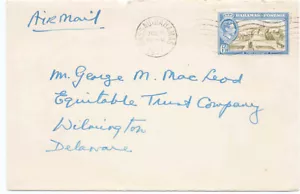 Air Mail
BAHAMAS POSTAGE
6D
Mr. George M. MacLeod
Equitable Trust Company
Wilmington
Delaware